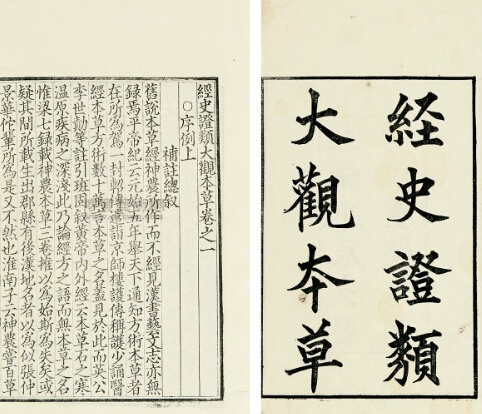 経史證類
大觀夲草
經史證類大觀本草卷之一
○序例上
補註總叙
舊說本草經神農所作而不經見漢書藝文志亦無
録焉平帝紀云元始五年舉天下通知方術本草者
在所爲駕一封軺傳遣詣京師樓護傳稱護少誦醫
經本草方術數十萬言本草之名蓋見於此而英公
李世勣等註引班固叙黄帝內外經云本草石之寒
温原疾病之深淺此乃論經方之語而無本草之名
惟梁七録載神農本草三卷推以爲始斯爲失矣或
疑其間所載生出郡縣有後漢地名者以爲似張仲
景華佗輩所爲是又不然也淮南子云神農嘗百草